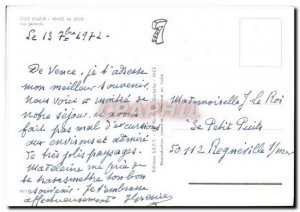 CÔTE D'AZUR - VENCE LA JOLIE
Vue générale
Le 13 7bre 1972 -
De Vence, je t'adresse
mon meilleur souvenir.
Nous voici à moitié de
notre séjour, et avons
fait pas mal d'excursions
aux environs et admiré
de très jolis paysages.
Madeleine me prie de
te transmettre son bon
souvenir. Je t'embrasse
affectueusement
Mademoiselle J. Le Roi
Le Petit Puits
50112 Regnéville s/mer